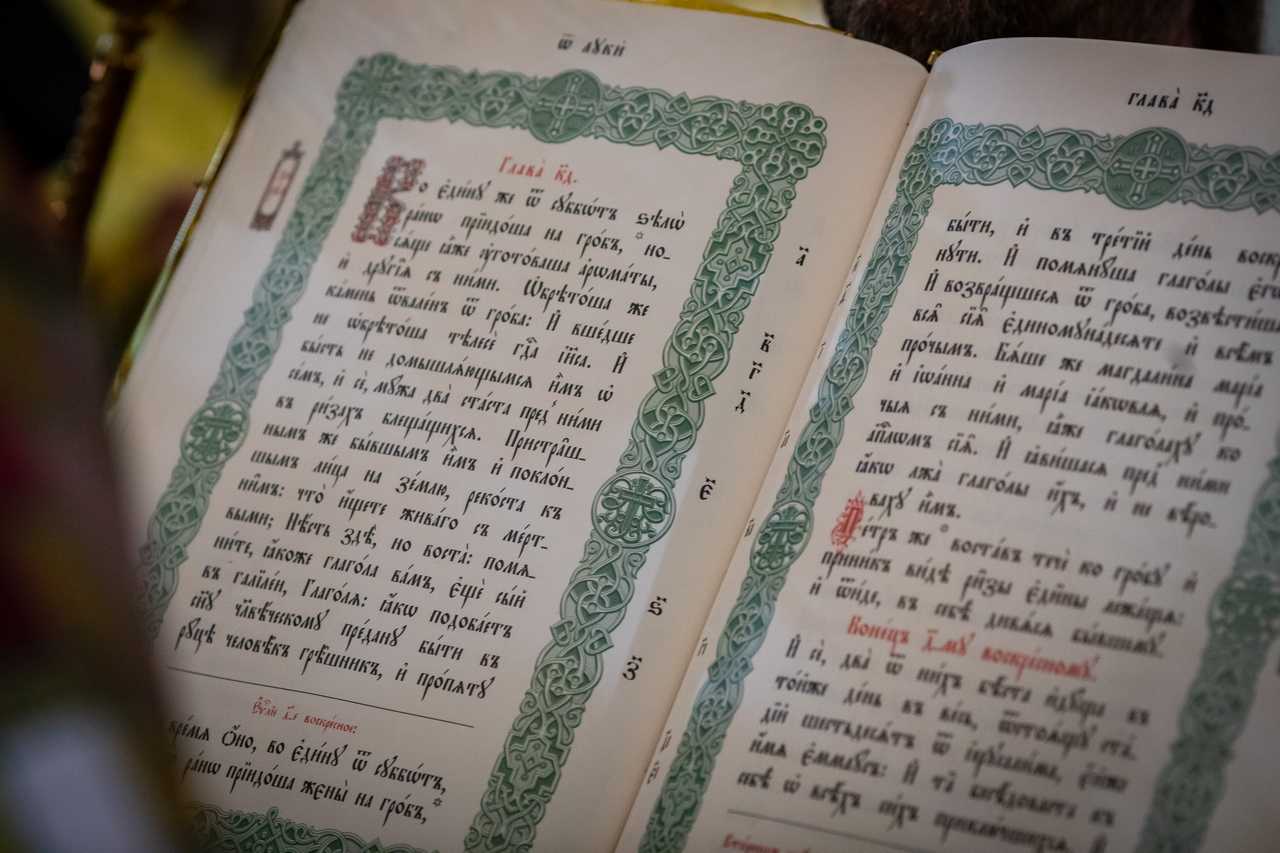 ѿ лꙋкѝ
Глава̀ к҃д.
Во є҆ди́нꙋ же ѿ сꙋббѡ́тъ ѕѣлѡ̀
ра́нѡ прїидо́ша на гро́бъ, но-
сѧ́щѧ ꙗ҆̀же ᲂу҆гото́ваша а҆рѡма́ты,
и҆ дрꙋгі̑ѧ съ ни́ми. Ѡ҆брѣто́ша же
ка́мень ѿвале́нъ ѿ гро́ба: И҆ вше́дше
не ѡ҆брѣто́ша тѣлесѐ гдⷭ҇а і҆и҃са. И҆
бы́сть не домышлѧ́ющымсѧ и҆̀мъ ѡ҆
се́мъ, и҆ сѐ, мꙋ̑жа два̀ ста́ста пред̾ ни́ми
въ ри́захъ блеща́щихсѧ. Пристра̑ш-
нымъ же бы́вшымъ и҆̀мъ и҆ поклѡ́н-
шымъ ли́ца на зе́млю, реко́ста къ
ни̑мъ: что̀ и҆́щете жива́го съ ме́рт-
выми; Нѣ́сть здѣ̀, но воста̀: помѧ-
ни́те, ꙗ҆́коже глаго́ла ва́мъ, є҆щѐ сы́й
въ галїле́и, Глаго́лѧ: ꙗ҆́кѡ подоба́етъ
сн҃ꙋ чл҃вѣ́ческомꙋ пре́данꙋ бы́ти въ
рꙋ́цѣ человѣ̑къ грѣ́шникъ, и҆ про́пѧтꙋ
воскре́сное:
вре́мѧ Ѻ҆́но, во є҆ди́нꙋ ѿ сꙋббѡ́тъ,
ра́нѡ прїидо́ша жєны̀ на гро́бъ,
а҃
в҃
г҃
д҃
є҃
ѕ҃
з҃
глава̀ к҃д
бы́ти, и҆ въ тре́тїй де́нь воскрⷭ҇
нꙋти. И҆ помѧнꙋ́ша глаго́лы є҆гѡ̀
И҆ возвра́щшесѧ ѿ гро́ба, возвѣсти́ша
всѧ̑ сїѧ̑ є҆диномꙋна́десѧте и҆ всѣ̑мъ
про́чымъ. Бѧ́ше же магдали́на марі́а
и҆ і҆ѡа́нна и҆ марі́а і҆а́кѡвлѧ, и҆ про́-
чыѧ съ ни́ми, ꙗ҆̀же глаго́лахꙋ ко
а҆пⷭ҇лѡмъ сїѧ̑. И҆ ꙗ҆ви́шасѧ пред̾ ни́ми
ꙗ҆́кѡ лжа̀ глаго́лы и҆́хъ, и҆ не вѣ́ро-
вахꙋ и҆̀мъ.
Пе́тръ же воста́въ течѐ ко гро́бꙋ и҆
прини́къ ви́дѣ ри̑зы є҆ди̑ны лежа́щѧ:
и҆ ѿи́де, въ себѣ̀ дивѧ́сѧ бы́вшемꙋ.
Коне́цъ воскре́сномꙋ.
И҆ сѐ, два̀ ѿ ни́хъ бѣ́ста и҆дꙋ̑ща въ
то́йже де́нь въ ве́сь, ѿстоѧ́щꙋ ста́-
дїй шестьдесѧ́тъ ѿ і҆ерⷭ҇ли́ма, є҆́йже
и҆́мѧ є҆ммаꙋ́съ: И҆ та̑ бесѣ́доваста къ
себѣ̀ ѡ҆ всѣ́хъ си́хъ приклю́чшихсѧ. И҆